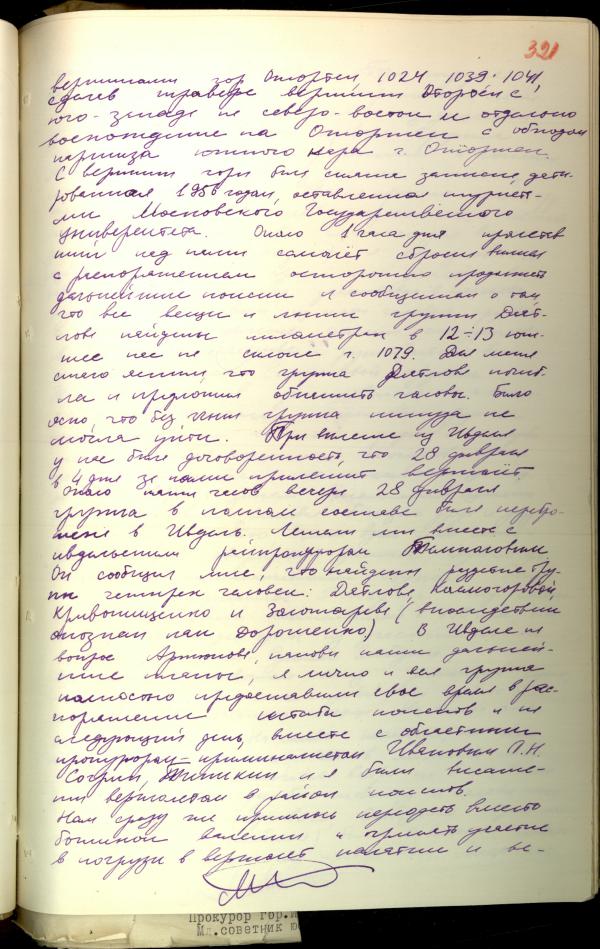 321
вершинами гор Отортен 1024, 1039, 1041,
сделав траверс вершины Отортен с
юго-запада на северо-восток и отдельно
восхождение на Отортен с обходом
карниза южного кара г. Отортен.
С вершины горы был снят записка, дати-
рованная 1956 годом, оставленная туриста-
ми Московского Государственного
Университета. Около 1 часа дня пролетев
ший над нами самолёт сбросил вымпел
с распоряжением осторожно продолжать
дальнейшие поиски и сообщением о том
что все вещи и лыжи группы Дят-
лова найдены километрах в 12÷13 юж-
нее нас на склоне г. 1079. Для меня
стало ясным, что группа Дятлова погиб-
ла и предложил обнажить головы. Было
ясно, что без лыж группа никуда не
могла уйти. При вылете из Ивделя
у нас была договоренность, что 28 февраля
в 4 дня за нами прилетит вертолёт.
Около пяти часов вечера 28 февраля
группа в полном составе была перебро-
шена в Ивдель. Летели мы вместе с
ивдельским райпрокурором Темпаловым
Он сообщил мне, что найдены раздетые тру-
пы четырех человек: Дятлова, Колмогоровой,
Кривонищенко и Золотарева (впоследствии
опознан как Дорошенко) В Ивделе на
вопрос Артюкова, каковы наши дальней-
шие планы, я лично и вся группа
полностью предоставили свое время в рас-
поряжение штаба поисков и на
следующий день, вместе с областным
прокурором-криминалистом Ивановым Л.Н.
Согрин, Типикин и я были высаже-
ны вертолетом в район поисков.
Нам сразу же пришлось переодеть вместо
ботинок валенки и принять участие
в погрузке в вертолет палатки и ве-
Прокурор гор.И
Мл.советник юс